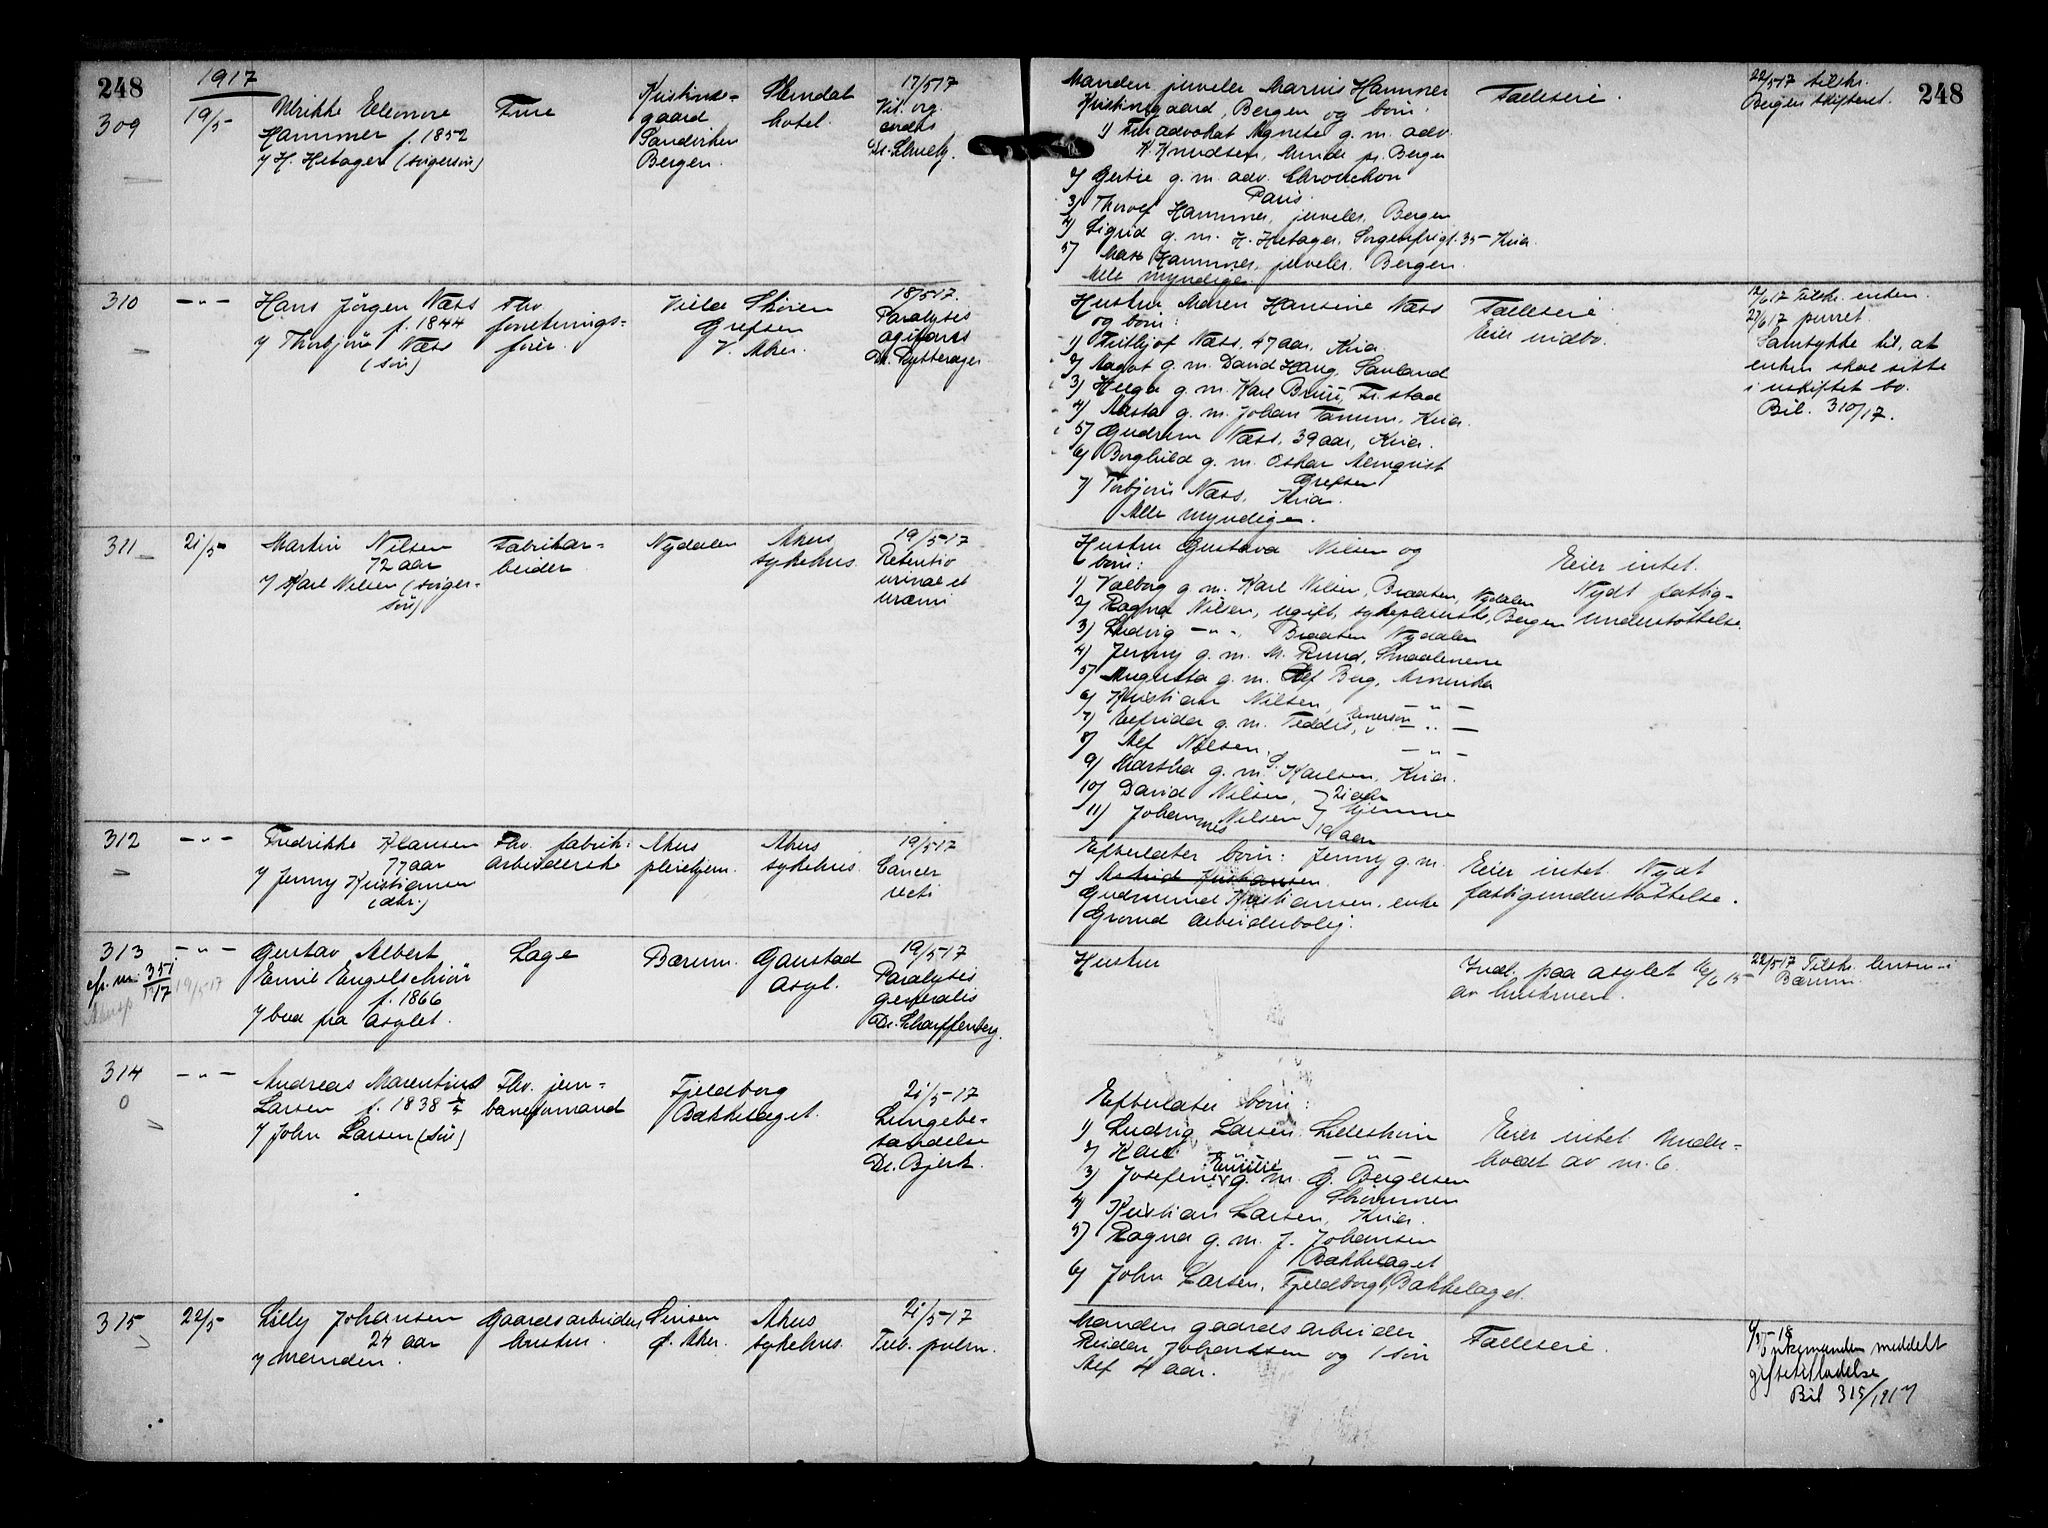 248
1917
309
19/5
Ulrikke Eleonore
Hammer f. 1852
v/ H. Hetager (svigersøn)
Frue
Kristine-
gaard
Sandviken
Bergen.
Slemdal
hotel.
17/5 17
Vit. org.
cordis
Manden juveler Marius Hammer
Kristinegaard, Bergen og børn:
1) Fru advokat Agnete g. m. adv.
K. Knudsen, Minde pr. Bergen
2) Gertie g. m. adv.
Paris.
3) Thorolf Hammer, juveler, Bergen
4) Sigrid g. m. H. Hetager, Sorgenfrigt. 35 - Kria.
5) Max Hammer, juveler, Bergen.
Alle myndige.
Fælleseie.
22/5 17 tilskr.
Bergen skifteret.
248
310
— " —
Hans Jørgen Næss
f. 1844
v/ Thorbjørn Næss
(søn)
Fhv.
forretnings-
fører.
Villa
Grefsen
V. Aker.
18/5 17.
Paralysis
agitans
Dr. Rytterager
Hustru Maren Hansine Næss
og børn:
1) Fritjof Næss, 47 aar, Kria.
2) Aagot g. m. David Haug, Sauland
3) Helga g. m. Karl Bruu, Fr.stad
4) Aasta g. m. Johan Tanum, Kria.
5) Gudrun Næss, 39 aar, Kria.
6) Borghild g. m. Oskar Almqvist
Grefsen
7) Torbjørn Næss, Kria.
Alle myndige.
Fælleseie.
Eier indbo.
12/6 17 Tilskr. enken.
27/6 17 purret.
Samtykke til, at
enken skal sitte
i uskiftet bo.
Bil. 310/17.
311
21/5
Martin Nilsen
72 aar
v/ Karl Nilsen (sviger-
søn)
Fabrikar-
beider
Nydalen
Akers
sykehus.
19/5-17
Retentio
urinae et
uræmi
Hustru Gustava Nilsen og
børn:
1) Valborg g. m. Karl Nilsen, Braaten, Nydalen
2) Ragna Nilsen, ugift, sykepleierske, Bergen
3) Ludvig — " —, Braaten Nydalen
4) Jenny g. m. M. Rund, Smaalenene
5) Augusta g. m. Alf Berg, Amerika
6) Kristian Nilsen, — " —
7) Elfrida g. m. Teddis, Emerson — " —
8) Alf Nilsen, — " —
9) Martha g. m. S. Karlsen, Kria.
10) David Nilsen, 21 aar
11) Johannes Nilsen } hjemme
19 aar
Eier intet.
Nydt fattig-
understøttelse.
312
— " —
Fredrikke Klausen
77 aar
v/ Jenny Kristiansen
(dtr.)
Fhv. fabrik-
arbeiderske
Akers
pleiehjem.
Akers
sykehus.
19/5 17
Cancer
recti
Efterlater børn: Jenny g. m.
Gudmund Kristiansen, enke
Grorud arbeiderbolig.
Eier intet. Nydt
fattigunderstøttelse.
313
cfr. nr. 351/17
— " —
19/5 17
Gustav Albert
Emil Engelschiøn
f. 1866
v/ bud fra asylet.
Læge
Bærum.
Gaustad
Asyl.
19/5-17
Paralysis
generalis
Dr. Scharffenberg.
Hustru
Indl. paa asylet 16/6 15
av hustruen.
22/5 17 Tilskr. lensm. i
Bærum.
314
0
— " —
Andreas Marentius
Larsen f. 1838
v/ John Larsen (søn)
Fhv. jern-
baneformand
Fjeldborg
Bækkelaget.
21/5-17
Lungebe-
tændelse
Dr. Bjerk.
Efterlater børn:
1) Ludvig Larsen, Lillestrøm
2) Karl " — " —
3) Josefine Emilie g. m. G. Bergersen
Strømmen
4) Kristian Larsen, Kria.
5) Ragna g. m. J. Johansen
Bækkelaget
6) John Larsen, Fjeldborg, Bækkelaget.
Eier intet. Under-
holdt av nr. 6.
315
22/5
Lilly Johansen
24 aar
v/ manden.
Gaardsarbeiders
hustru.
Linsen
Ø. Aker.
Akers
sykehus.
21/5-17
Tub. pulm.
Manden gaardsarbeider
Reidar Johanssen og 1 søn
Alf 4 aar.
Fælleseie.
Enkemanden meddelt
giftetilladelse
Bil 315/1917